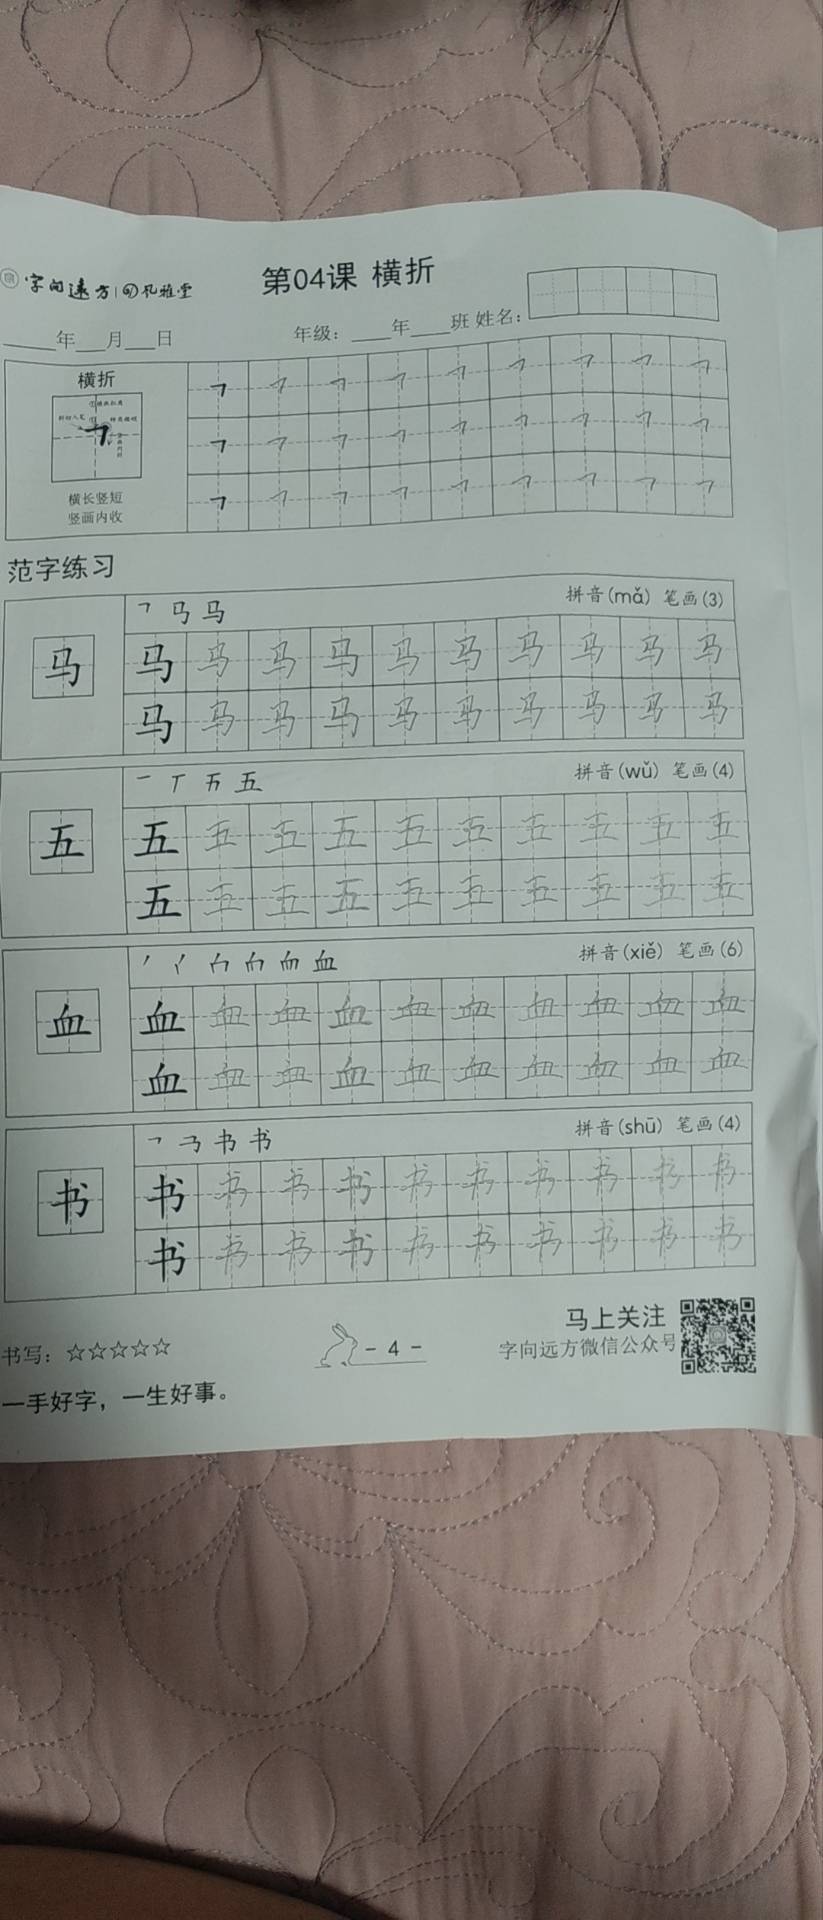 字向远方 孔雅堂
第04课 横折
年 月 日 年级: 年 班 姓名:
横折
横长竖短
竖画内收
㇕ ㇕ ㇕ ㇕ ㇕ ㇕ ㇕ ㇕ ㇕
㇕ ㇕ ㇕ ㇕ ㇕ ㇕ ㇕ ㇕ ㇕
㇕ ㇕ ㇕ ㇕ ㇕ ㇕ ㇕ ㇕ ㇕
范字练习
拼音(mǎ) 笔画(3)
马
马 马 马 马 马 马 马 马 马 马
马 马 马 马 马 马 马 马 马 马
拼音(wǔ) 笔画(4)
五
五 五 五 五 五 五 五 五 五 五
五 五 五 五 五 五 五 五 五 五
拼音(xiě) 笔画(6)
血
血 血 血 血 血 血 血 血 血 血
血 血 血 血 血 血 血 血 血 血
拼音(shū) 笔画(4)
书
书 书 书 书 书 书 书 书 书 书
书 书 书 书 书 书 书 书 书 书
书写：☆☆☆☆☆
- 4 -
马上关注
字向远方微信公众号
一手好字，一生好事。